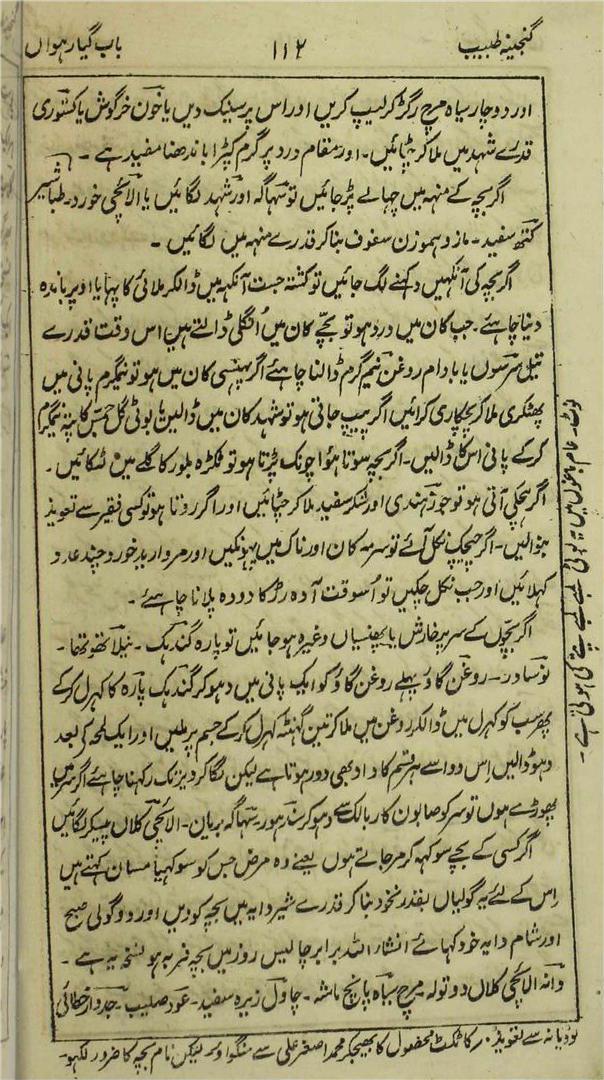 گنجینہ طبیب ۱۱۲ باب گیارہواں
اور دوچار سیاہ مرچ رگڑ کر لیپ کریں اور اس پر سینک دیں یا خون خرگوش یا کستوری
قدرے شہد میں ملا کر چٹائیں۔ اور مقام درد پر گرم کپڑا باندھنا مفید ہے۔
اگر بچہ کے منہہ میں چہالے پڑ جائیں تو سہاگہ اور شہد لگائیں یا الائچی خورد۔ طباشیر
کتھ سفید۔ مازو ہموزن سفوف بنا کر قدرے منہہ میں لگائیں۔
اگر بچہ کی آنکہیں دکہنے لگ جائیں تو کشتہ جست آنکہہ میں ڈالکر ملائی کا پہایا اوپر باندہ
دینا چاہئے۔ جب کان میں درد ہو تو بچے کان میں اُنگلی ڈالتے ہیں اس وقت قدرے
تیل سرسوں یا بادام روغن نیم گرم ڈالنا چاہئے اگر پہنسی کان میں ہو تو نیمگرم پانی میں
پھٹکری ملا کر پچکاری کرائیں اگر پیپ جاتی ہو تو شہد کان میں ڈالیں یا بوٹی گل کا پتہ نیمگرم
کر کے پانی اسکا ڈالیں۔ اگر بچہ سوتا ہؤا چونک پڑتا ہو تو ٹکڑہ بلور کا گلے میں لٹکائیں۔
اگر ہچکی آتی ہو تو جوز ہندی اور شکر سفید ملا کر چٹائیں اور اگر روتا ہو تو کسی فقیر سے تعویذ
بنوالیں۔ اگر چیچک نکل آئے تو سرمہ کان اور ناک میں پہونکیں اور مروارید خورد چند عدد
کہلائیں اور جب نکل چکیں تو اُسوقت آدہ رڑکا دودہ پلانا چاہئے۔
اگر بچوں کے سر پر خارش یا پھنسیاں وغیرہ ہو جائیں تو پارہ گندہک۔ نیلا تھوتھا۔
نوسادر۔ روغن گاؤ پہلے روغن گاؤ کو ایک پانی میں دہو کر گندہک پارہ کا کہرل کر کے
پھر سب کو کہرل میں ڈالکر روغن میں ملا کر تین گہنٹہ کہرل کر کے جسم پر ملیں اور ایک لمحہ کے بعد
دہو ڈالیں اِس دوا سے ہر قسم کا داد بھی دور ہوتا ہے لیکن لگا کر دیر تک رکہنا چاہئے اگر سر میں
پھوڑے ہوں تو سر کو صابون کاربالک سے دہو کر سندہور۔ سہاگہ بریان۔ الائچی کلاں پیسکر لگائیں
اگر کسی کے بچے سوکہہ کر مر جاتے ہوں یعنے وہ مرض جس کو سوکہیا مسان کہتے ہیں
اِس کے لئے یہ گولیاں بقدر نخود بنا کر قدرے شیر دایہ میں بچہ کو دیں اور دو گولی صبح
اور شام دایہ خود کہائے انشاء اللہ برابر چالیس روز میں بچہ فربہ ہو نسخہ یہ ہے۔
دانہ الائچی کلاں دو تولہ مرچ سیاہ پانچ ماشہ۔ چاول زیرہ سفید۔ عود صلیب۔ جدوار خطائی
لودیانہ سے تعویذ۔ کا ٹکٹ محصول کا بھیجکر محمد اصغر علی سے منگواؤ لیکن نام بچہ کا ضرور لکہو۔
نوٹ۔ عام باغوں میں یہ بوٹی لمبے لمبے پتے کی ہوتی ہے۔